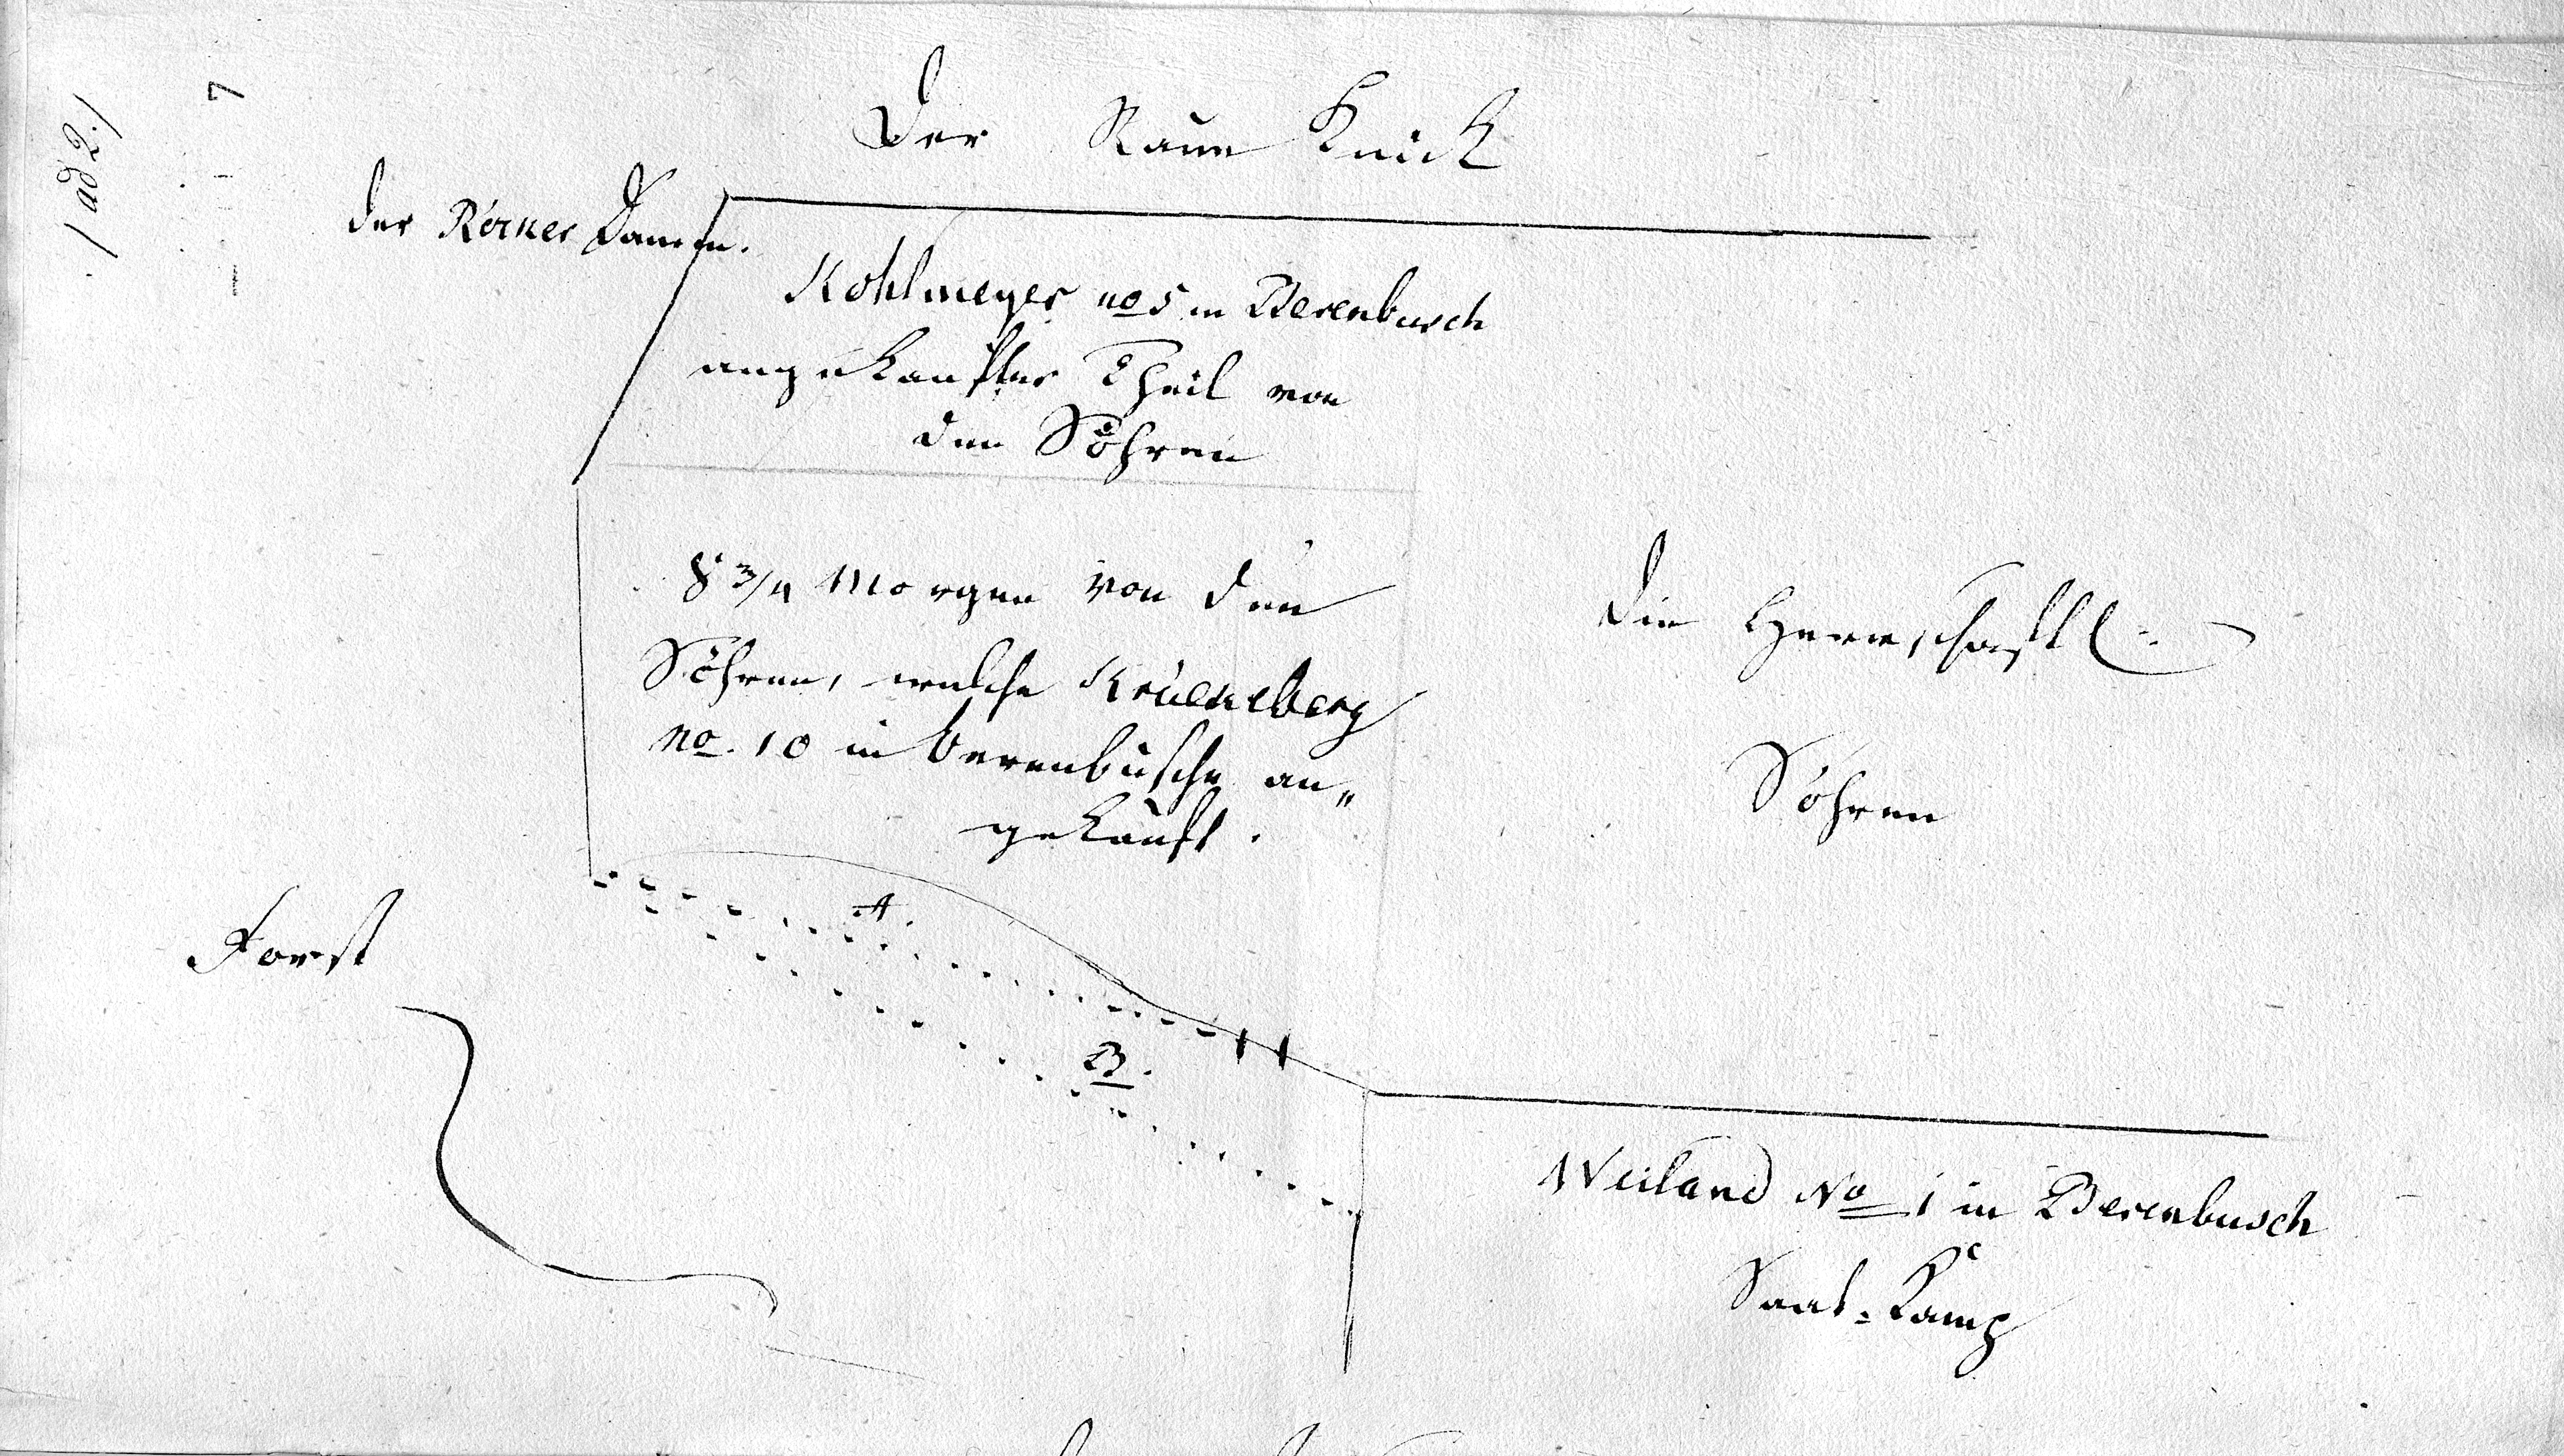 / ad 2. /
7
Der Raue Knick
der Rörker Damm.
Kohlmeyer no 5 in Berenbusch
angekaufter Theil von
den Söhren
8 3/4 Morgen von den
Söhren, welche Krückeberg
no. 10 in berenbusche an„
gekauft.
Die Herrschaftl.
Söhren
A.
Forst
B.
Weiland No 1 in Berenbusch
Saat-Kamp